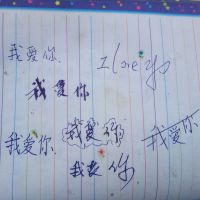 我爱你 I love yo
我爱你
我爱你 我爱你 我爱你
我爱你